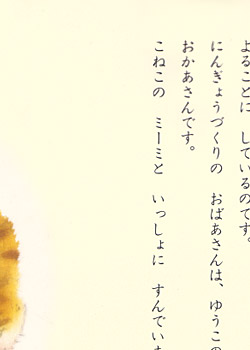 よることに　しているのです。
にんぎょうづくりの　おばあさんは、ゆうこの
おかあさんです。
こねこの　ミーミと　いっしょに　すんでいま